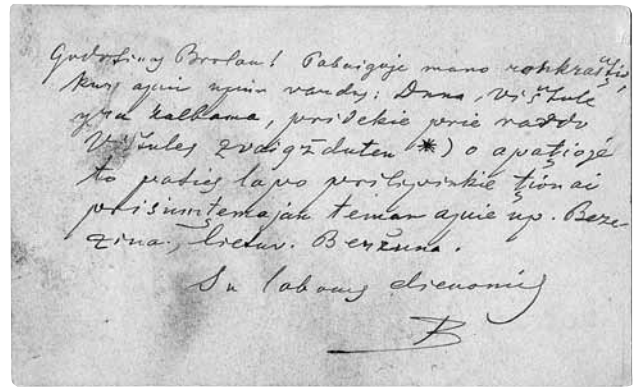 Godotinas Brolau! Pabaigoje mano rankraščio,
kur apie upiu vardus: Duna, Vistule
yra kalbama, pridekie prie žodžio
Vistules zvaigžduten *) o apačioje
to paties lapo prilipinkie čionai
prisiunčiamajan teman apie up. Bere-
zina, lietuv. Beržuna.
Su labomis dienomis
B